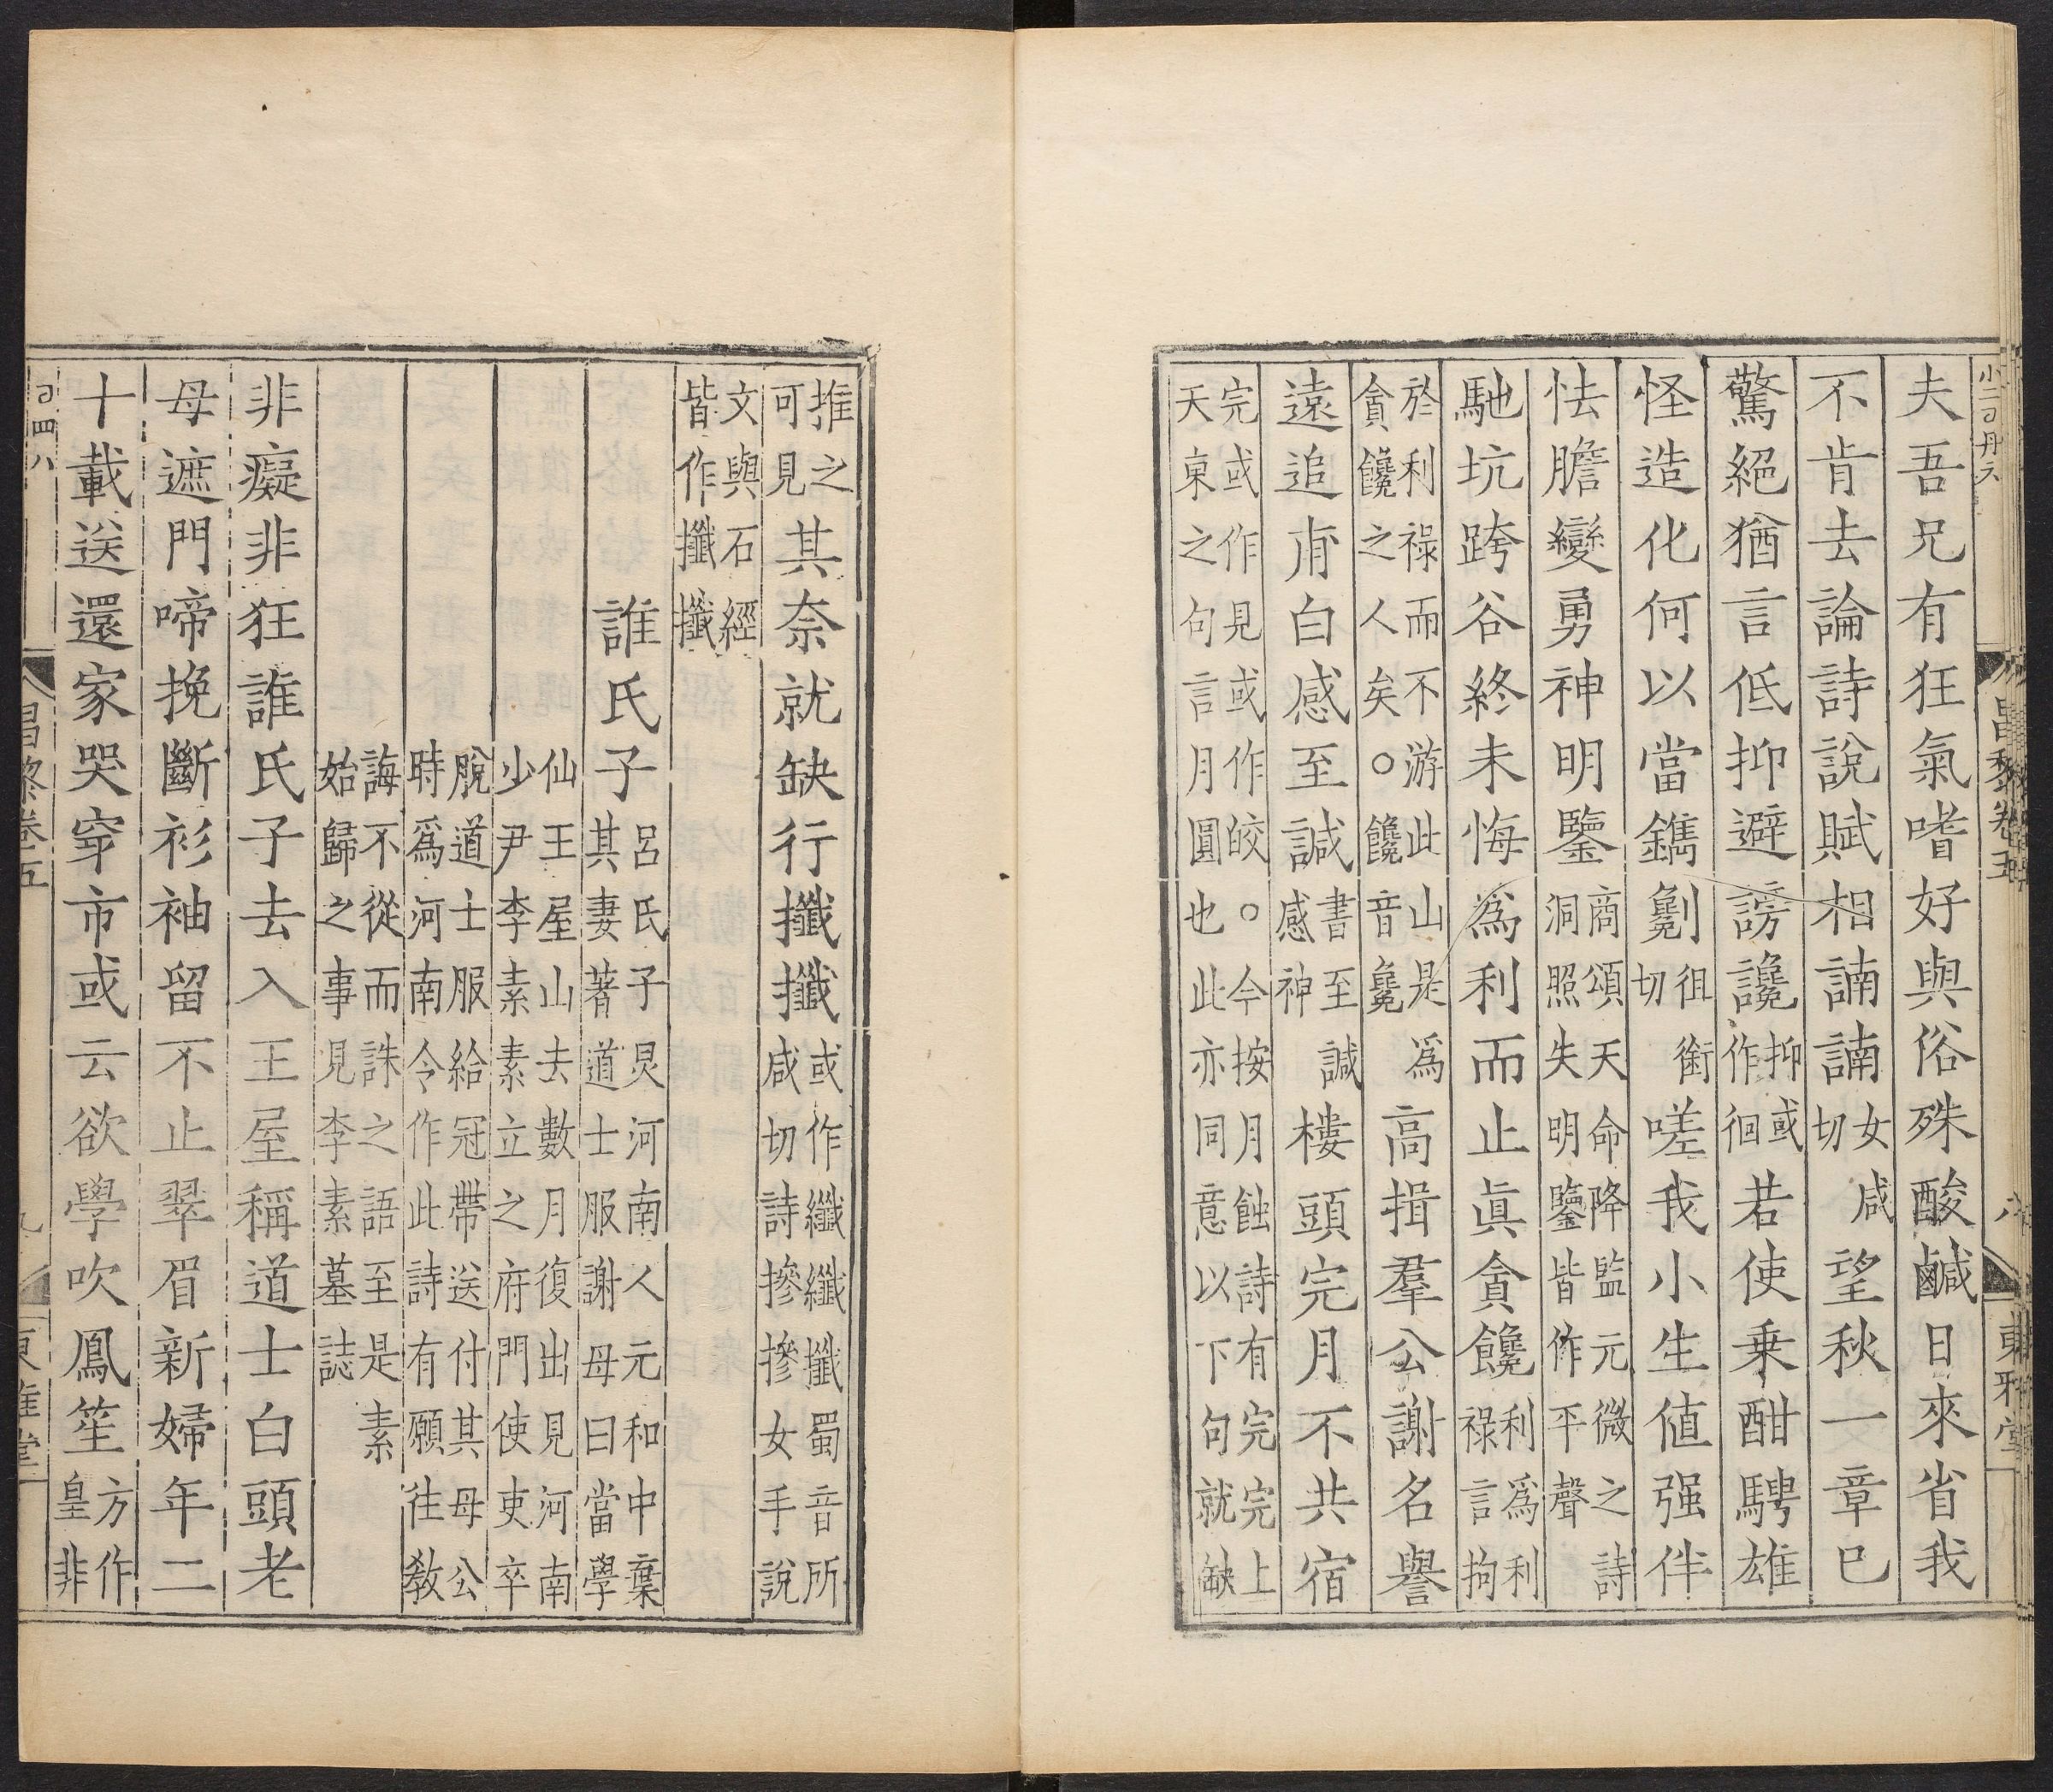 夫吾兄有狂氣嗜好與俗殊酸鹹日來省我
不肯去論詩說賦相諵諵女咸切望秋一章已
驚絕猶言低抑避謗讒抑或作徊若使乗酣騁雄
怪造化何以當鐫劖徂銜切嗟我小生値强伴
怯膽變勇神明鑒商頌天命降監元微之詩洞照失明鑒皆作平聲
馳坑跨谷終未悔爲利而止眞貪饞利爲利祿言拘
於利祿而不游此山是爲貪饞之人矣○饞音毚高揖羣公謝名譽
遠追甫白感至諴書至諴感神樓頭完月不共宿
完或作見或作皎○今按月蝕詩有完完上天東之句言月圓也此亦同意以下句就缺
推之可見其奈就缺行攕攕或作纖纖攕蜀音所咸切詩摻摻女手說
文與石經皆作攕攕
誰氏子呂氏子炅河南人元和中棄其妻著道士服謝母曰當學
仙王屋山去數月復出見河南少尹李素素立之府門使吏卒
脫道士服給冠帶送付其母公時爲河南令作此詩有願往敎
誨不從而誅之語至是素始歸之事見李素墓誌
非癡非狂誰氏子去入王屋稱道士白頭老
母遮門啼挽斷衫袖留不止翠眉新婦年二
十載送還家哭穿市或云欲學吹鳳笙方作皇非
昌黎卷五
八
東雅堂
昌黎卷五
九
東雅堂